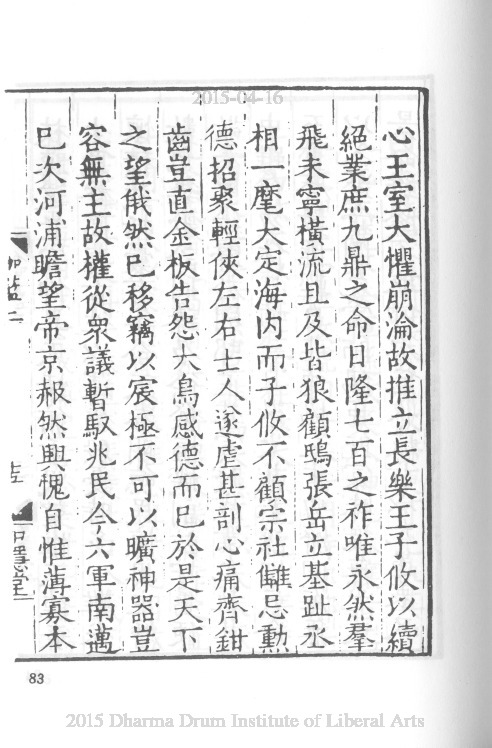 2015-04-16
心王室大懼崩淪故推立長樂王子攸以續
絕業庶九鼎之命日隆七百之祚唯永然羣
飛未寧橫流且及皆狼顧鴟張岳立基趾丞
相一麾大定海內而子攸不顧宗社讎忌勳
德招聚輕俠左右士人遂虐甚剖心痛齊鉗
齒豈直金板告怨大鳥感德而巳於是天下
之望俄然巳移竊以宸極不可以曠神器豈
容無主故權從眾議暫馭兆民今六軍南邁
巳次河浦瞻望帝京赧然興愧自惟薄寡本
83
2015 Dharma Drum Institute of Liberal Arts